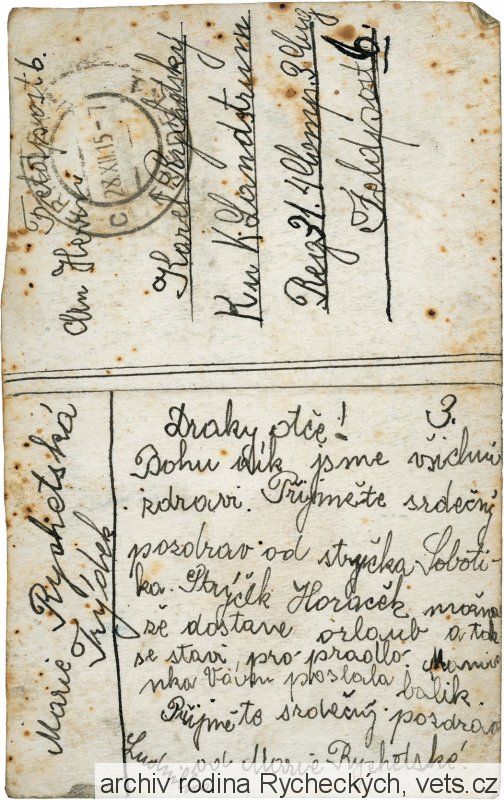 Feldpost 6.
An Herrn
Karel Rychetský
K u K Landstrum
Reg 21. 4 Comp. 3 Zug
Feldpost 6
28 XII 15-7
C
Marie Rychetská
Draky otčě! 3.
Bohu dík jsme všichni
zdravi. Přijměte srdečný
pozdrav od strýčka Soboti-
ka. Strýček Horaček možna
že dostane orlaub a tak
se stavi pro pradlo. Mami-
nka Vám poslala balik.
Přijměte srdečný pozdrav
od Marie Rychetské!
archiv rodina Rycheckých, vets.cz